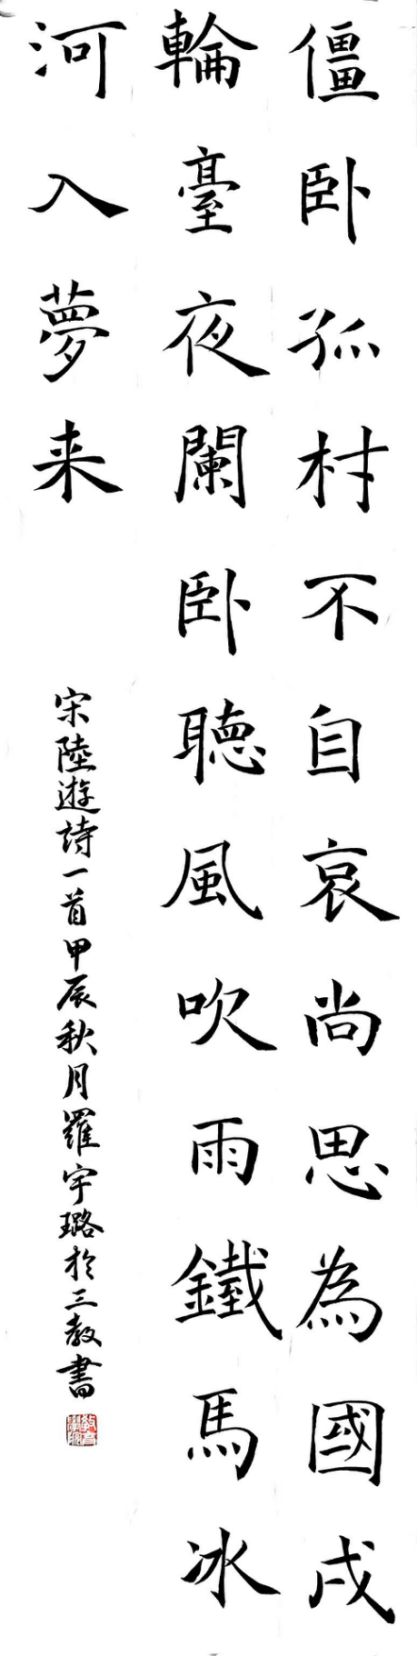 僵卧孤村不自哀尚思為國戍
輪臺夜闌卧聽風吹雨鐵馬冰
河入夢来
宋陸遊詩一首甲辰秋月羅宇璐於三教書